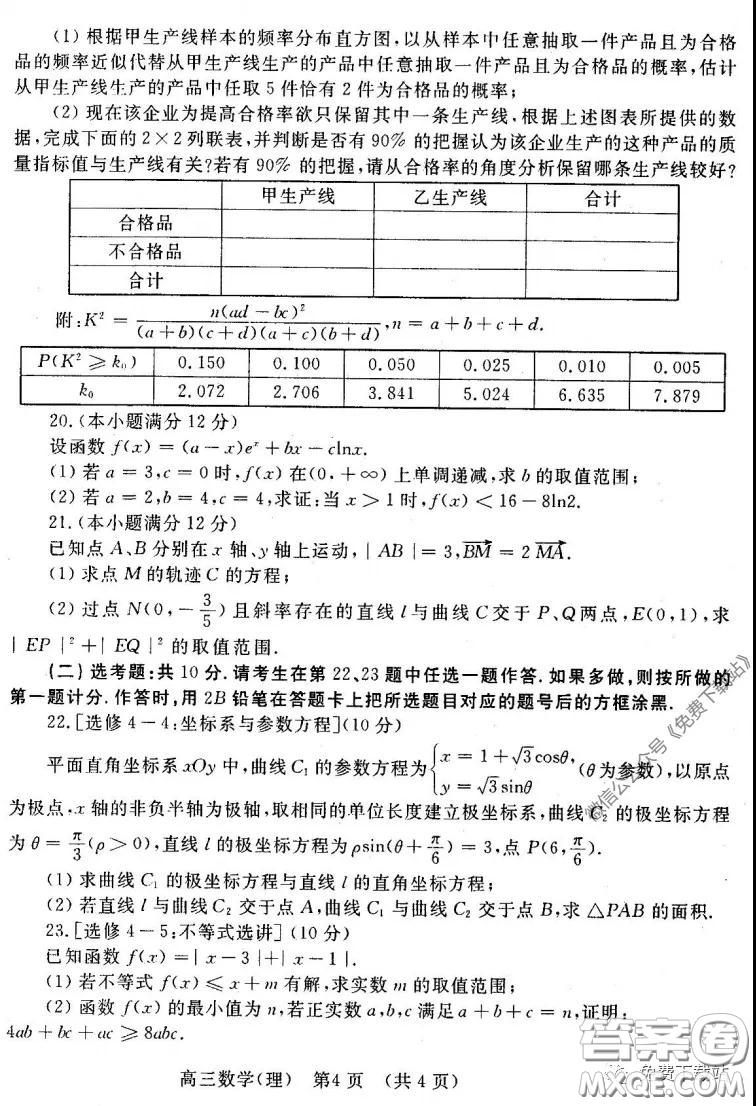 (1) 根据甲生产线样本的频率分布直方图,以从样本中任意抽取一件产品且为合格
品的频率近似代替从甲生产线生产的产品中任意抽取一件产品且为合格品的概率,估计
从甲生产线生产的产品中任取 5 件恰有 2 件为合格品的概率;
(2) 现在该企业为提高合格率欲只保留其中一条生产线,根据上述图表所提供的数
据,完成下面的 2×2 列联表,并判断是否有 90% 的把握认为该企业生产的这种产品的质
量指标值与生产线有关?若有 90% 的把握,请从合格率的角度分析保留哪条生产线较好?
甲生产线 乙生产线 合计
合格品
不合格品
合计
附:K² = n(ad − bc)² / (a+b)(c+d)(a+c)(b+d), n = a + b + c + d.
P(K² ≥ k₀) 0.150 0.100 0.050 0.025 0.010 0.005
k₀ 2.072 2.706 3.841 5.024 6.635 7.879
20. (本小题满分 12 分)
设函数 f(x) = (a − x)eˣ + bx − clnx.
(1) 若 a = 3,c = 0 时,f(x) 在(0,+∞) 上单调递减,求 b 的取值范围;
(2) 若 a = 2,b = 4,c = 4,求证:当 x > 1 时,f(x) < 16 − 8ln2.
21. (本小题满分 12 分)
已知点 A、B 分别在 x 轴、y 轴上运动,| AB | = 3,BM→ = 2 MA→.
(1) 求点 M 的轨迹 C 的方程;
(2) 过点 N(0, − 3/5) 且斜率存在的直线 l 与曲线 C 交于 P、Q 两点,E(0,1),求
| EP |² + | EQ |² 的取值范围.
(二) 选考题:共 10 分.请考生在第 22、23 题中任选一题作答.如果多做,则按所做的
第一题计分.作答时,用 2B 铅笔在答题卡上把所选题目对应的题号后的方框涂黑.
22. [选修 4−4:坐标系与参数方程](10 分)
平面直角坐标系 xOy 中,曲线 C₁ 的参数方程为{x = 1 + √3cosθ, y = √3sinθ (θ 为参数),以原点
为极点,x 轴的非负半轴为极轴,取相同的单位长度建立极坐标系,曲线 C₂ 的极坐标方程
为 θ = π/3 (ρ > 0),直线 l 的极坐标方程为 ρsin(θ + π/6) = 3,点 P(6, π/6).
(1) 求曲线 C₁ 的极坐标方程与直线 l 的直角坐标方程;
(2) 若直线 l 与曲线 C₂ 交于点 A,曲线 C₁ 与曲线 C₂ 交于点 B,求 △PAB 的面积.
23. [选修 4−5:不等式选讲] (10 分)
已知函数 f(x) = | x − 3 | + | x − 1 |.
(1) 若不等式 f(x) ≤ x + m 有解,求实数 m 的取值范围;
(2) 函数 f(x) 的最小值为 n,若正实数 a,b,c 满足 a + b + c = n,证明:
4ab + bc + ac ≥ 8abc.
高三数学(理) 第4页 (共 4 页)
微信公众号《免费下载站》
答案卷
免费下载站
MXQE.COM